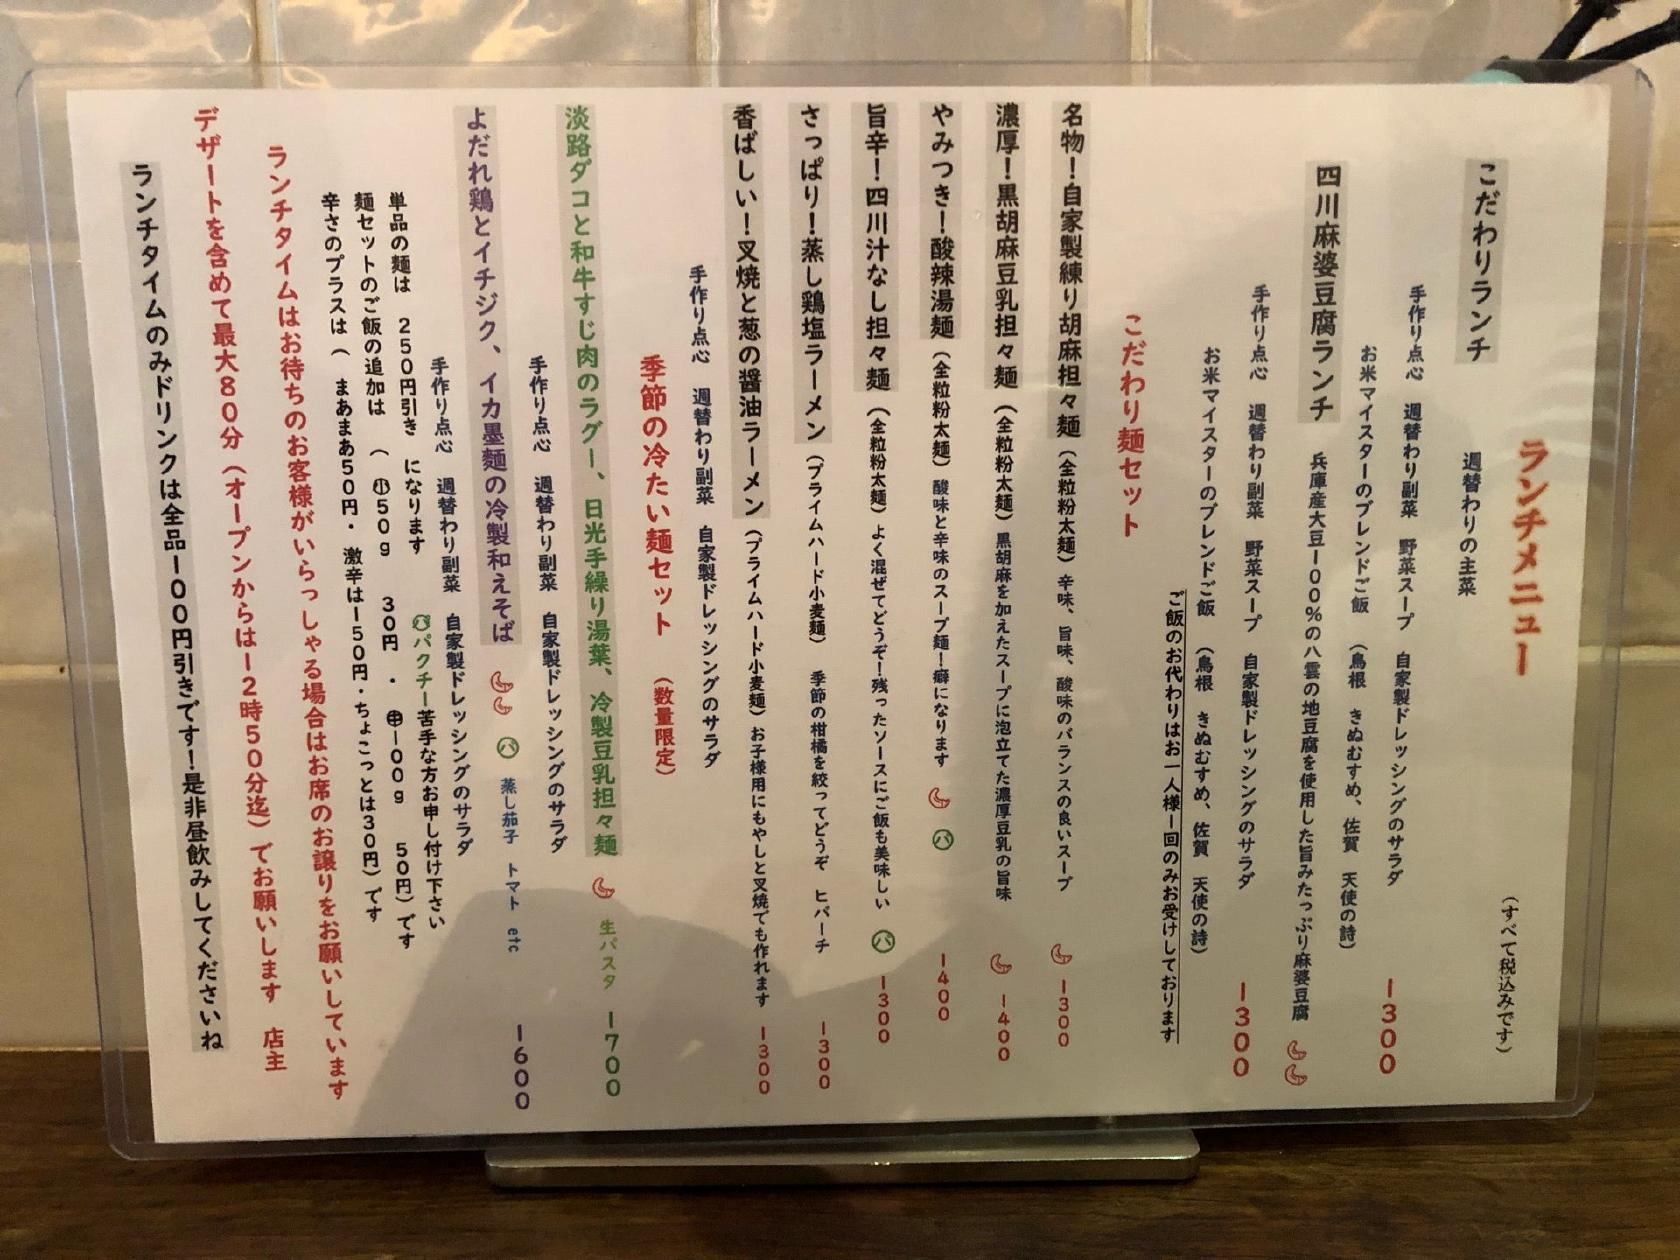 ランチメニュー
(すべて税込みです)
こだわりランチ 週替わりの主菜
手作り点心 週替わり副菜 野菜スープ 自家製ドレッシングのサラダ 1300
お米マイスターのブレンドご飯 (鳥根 きぬむすめ、佐賀 天使の詩)
四川麻婆豆腐ランチ 兵庫産大豆100%の八雲の地豆腐を使用した旨みたっぷり麻婆豆腐
手作り点心 週替わり副菜 野菜スープ 自家製ドレッシングのサラダ 1300
お米マイスターのブレンドご飯 (鳥根 きぬむすめ、佐賀 天使の詩)
ご飯のお代わりはお一人様1回のみお受けしております
こだわり麺セット
名物!自家製練り胡麻担々麺 (全粒粉太麺) 辛味、旨味、酸味のバランスの良いスープ 1300
濃厚!黒胡麻豆乳担々麺 (全粒粉太麺) 黒胡麻を加えたスープに泡立てた濃厚豆乳の旨味 1400
やみつき!酸辣湯麺 (全粒粉太麺) 酸味と辛味のスープ麺!癖になります パ 1400
旨辛!四川汁なし担々麺 (全粒粉太麺) よく混ぜてどうぞ!残ったソースにご飯も美味しい パ 1300
さっぱり!蒸し鶏塩ラーメン (プライムハード小麦麺) 季節の柑橘を絞ってどうぞ ヒバーチ 1300
香ばしい!叉焼と葱の醤油ラーメン (プライムハード小麦麺) お子様用にもやしと叉焼でも作れます 1300
手作り点心 週替わり副菜 自家製ドレッシングのサラダ
季節の冷たい麺セット (数量限定)
淡路ダコと和牛すじ肉のラグー、日光手繰り湯葉、冷製豆乳担々麺 生パスタ 1700
手作り点心 週替わり副菜 自家製ドレッシングのサラダ
よだれ鶏とイチジク、イカ墨麺の冷製和えそば パ 蒸し茄子 トマト etc 1600
手作り点心 週替わり副菜 自家製ドレッシングのサラダ
単品の麺は 250円引き になります パパクチー苦手な方お申し付け下さい
麺セットのご飯の追加は ( 小50g 30円 ・ 中100g 50円)です
辛さのプラスは ( まあまあ50円・ 激辛は150円・ちょこっとは30円)です
ランチタイムはお待ちのお客様がいらっしゃる場合はお席のお譲りをお願いしています
デザートを含めて最大80分 (オープンからは12時50分迄) でお願いします 店主
ランチタイムのみドリンクは全品100円引きです!是非昼飲みしてくださいね